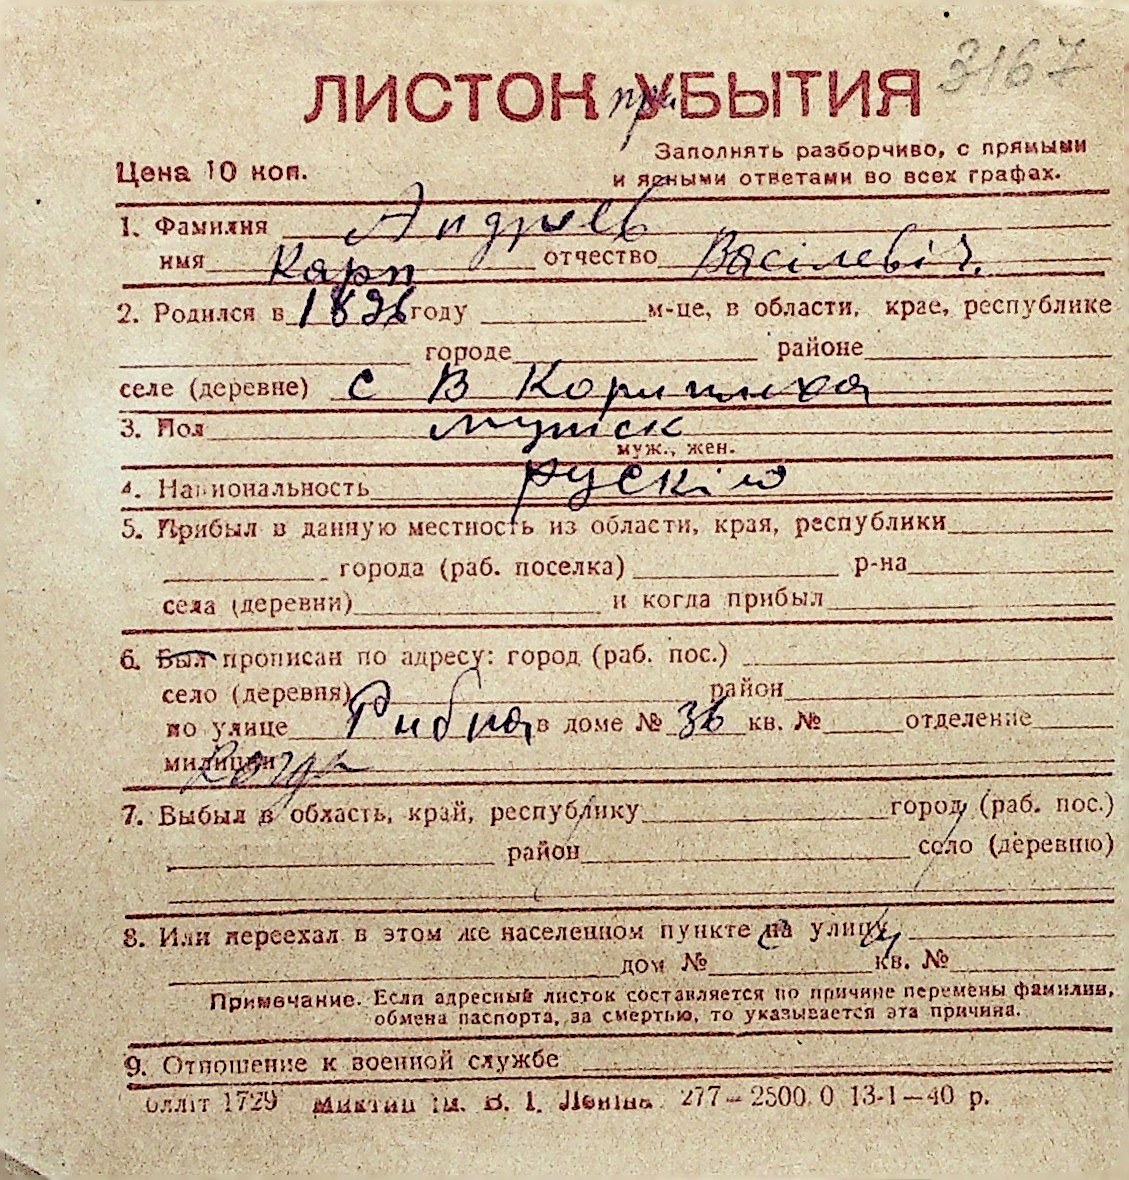 3167
ЛИСТОК при УБЫТИЯ
Заполнять разборчиво, с прямыми
Цена 10 коп.
и ясными ответами во всех графах.
1. Фамилия Андреев
имя Карп отчество Васілевіч.
2. Родился в 1896 году м-це, в области, крае, республике
городе районе
селе (деревне) с В
3. Пол мушск
муж., жен.
4. Национальность рускій
5. Прибыл в данную местность из области, края, республики
города (раб. поселка) р-на
села (деревни) и когда прибыл
6. Был прописан по адресу: город (раб. пос.)
село (деревня) район
по улице Рибна в доме № 36 кв. № отделение
милиции
7. Выбыл в область, край, республику город (раб. пос.)
район село (деревню)
8. Или переехал в этом же населенном пункте на улицу
дом № кв. №
Примечание. Если адресный листок составляется по причине перемены фамилии,
обмена паспорта, за смертью, то указывается эта причина.
9. Отношение к военной службе
1729 ім. В. І. Леніна 277—2500.0 13-1—40 р.